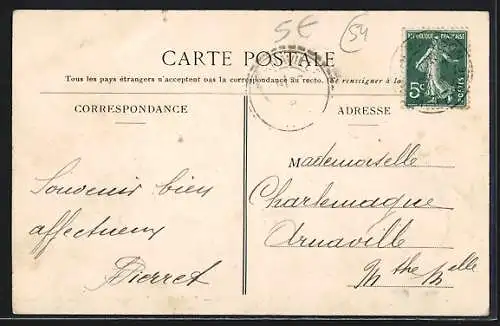 5€ 54
CARTE POSTALE
Tous les pays étrangers n'acceptent pas la correspondance au recto. (Se renseigner à la
RÉPUBLIQUE FRANÇAISE
5c POSTES
CORRESPONDANCE
ADRESSE
Mademoiselle
Charlemagne
Arnaville
Mthe Melle
Souvenir bien
affectueux
Pierret